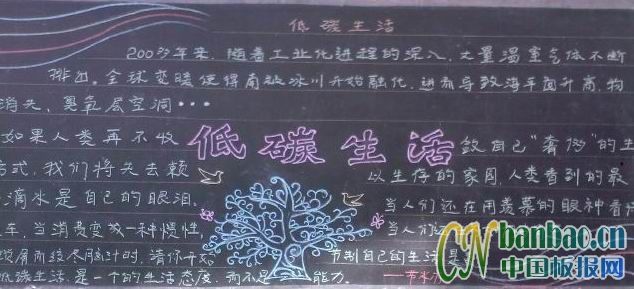 低碳生活
200多年来，随着工业化进程的深入，大量温室气体不断
排出，全球变暖使得南极冰川开始融化，进而导致海平面升高，物
消失，臭氧层空洞···
如果人类再不收
低碳生活
敛自己"奢侈"的生
方式，我们将失去赖
以生存的家园，人类看到的最
滴水是自己的眼泪。
当人们还在用羡慕的眼神看
车，当消费变成一种惯性，
当人们还
节制自己的生活是
低碳生活是一个的生活态度，而不是 能力。
CN banbao.cn
中国板报网